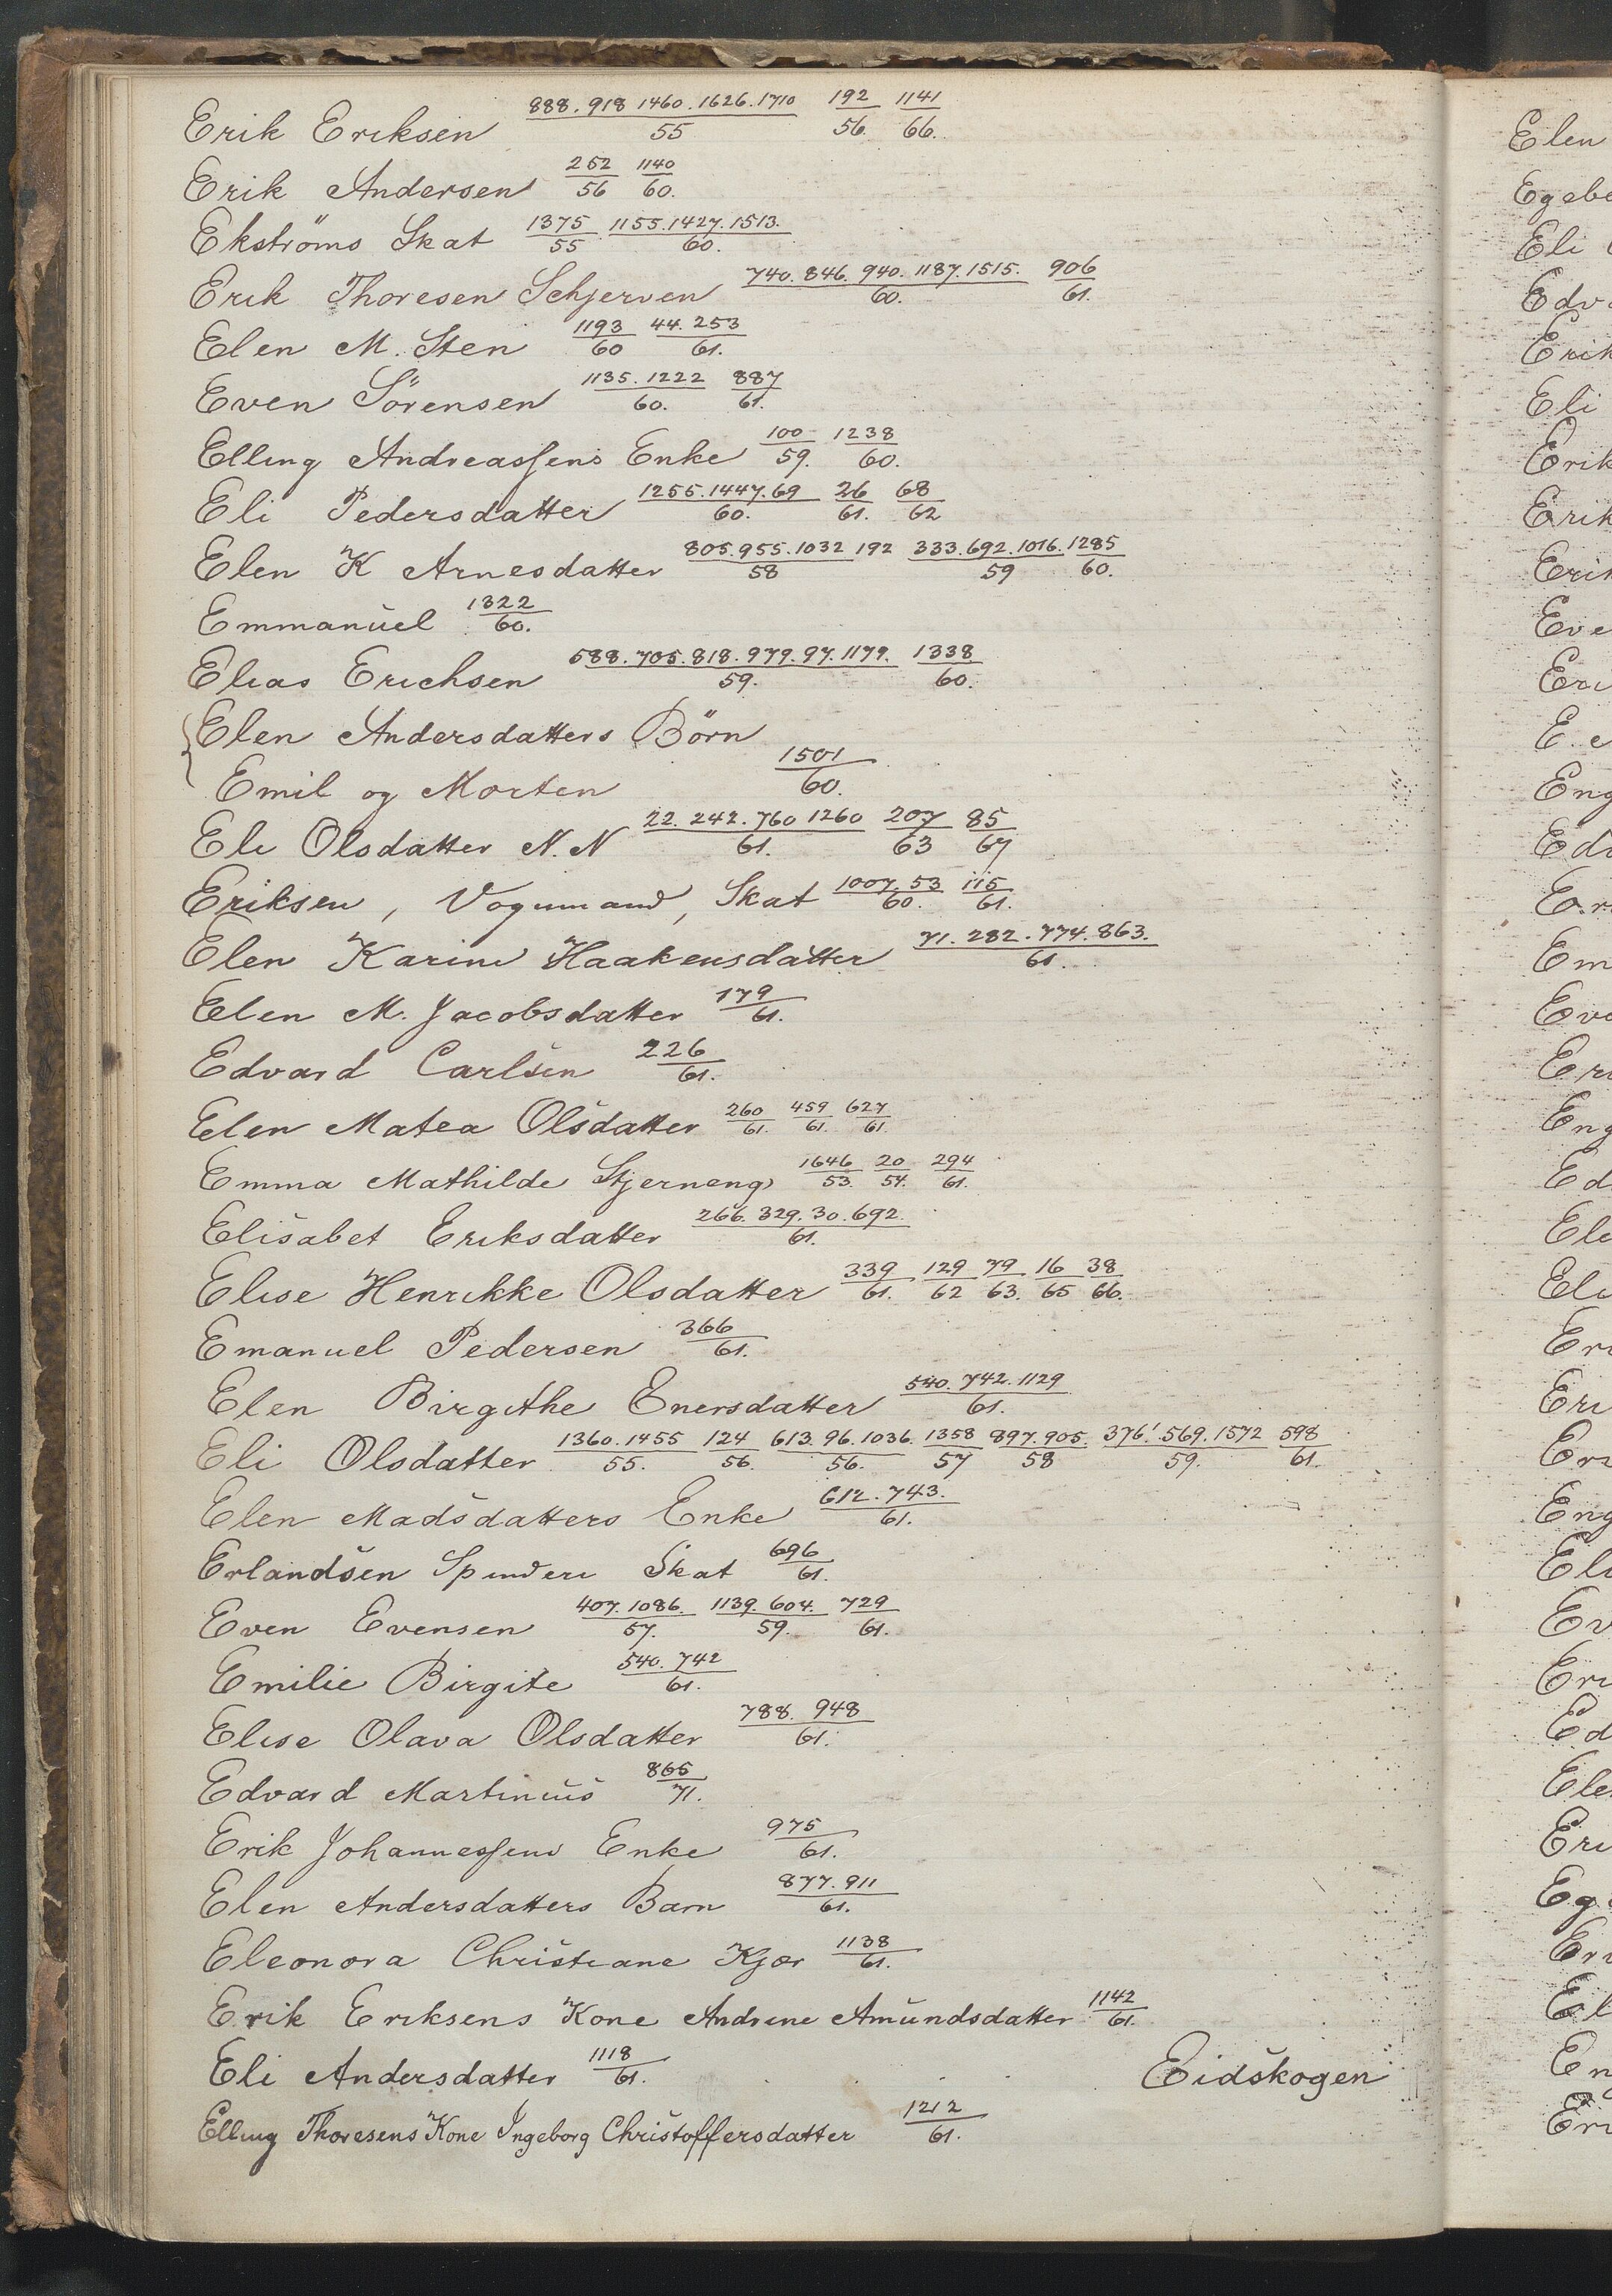 Erik Eriksen 888. 918 1460. 1626. 1710/55 192/56. 1141/66.
Erik Andersen 252/56 1140/60.
Ekströms Skat 1375/55 1155. 1427. 1513./60.
Erik Thoresen Schjerven 740. 846. 940. 1187. 1515./60. 906/61.
Elen M. Sten 1193/60 44. 253/61.
Even Sörensen 1135. 1222/60. 887/61.
Elling Andreassens Enke 100/59. 1238/60.
Eli Pedersdatter 1255. 1447. 69/60. 26/61. 68/62
Elen K Arnesdatter 805. 955. 1032/58 192 333. 692. 1016./59 1285/60.
Emmanuel 1322/60.
Elias Erichsen 588. 705. 818. 979. 97. 1179./59. 1338/60.
Elen Andersdatters Börn
Emil og Morten 1501/60.
Eli Olsdatter N. N 22. 242. 760 1260/61. 207/63 85/67
Eriksen, Vognmand, Skat 1007. 53/60. 115/61.
Elen Karine Haakensdatter 71. 282. 774. 863./61.
Elen M. Jacobsdatter 179/61.
Edvard Carlsen 226/61.
Elen Matea Olsdatter 260/61. 459/61. 627/61.
Emma Mathilde Stjerneng 1646/53. 20/54. 294/61.
Elisabet Eriksdatter 266. 329. 30. 692./61.
Elise Henrikke Olsdatter 339/61. 129/62 79/63. 16/65 38/66.
Emanuel Pedersen 366/61.
Elen Birgithe Enersdatter 540. 742. 1129/61.
Eli Olsdatter 1360. 1455/55. 124/56. 613. 96. 1036./56. 1358/57 897. 905./58 376. 569. 1572/59. 598/61.
Elen Madsdatters Enke 612. 743./61.
Erlandsen Skat 696/61.
Even Evensen 407. 1086./57. 1139. 604./59. 729/61.
Emilie Birgite 540. 742/61.
Elise Olava Olsdatter 788. 948/61.
Edvard Martinius 865/71.
Erik Johannessens Enke 975/61.
Elen Andersdatters Barn 877. 911/61.
Eleonora Christiane Kjær 1138/61.
Erik Eriksens Kone Andrine Amundsdatter 1142/61.
Eli Andersdatter 1118/61. Eidskogen
Elling Thoresens Kone Ingeborg Christoffersdatter 1212/61.
Elen
Eli
Erik
Eli
Erik
Erik